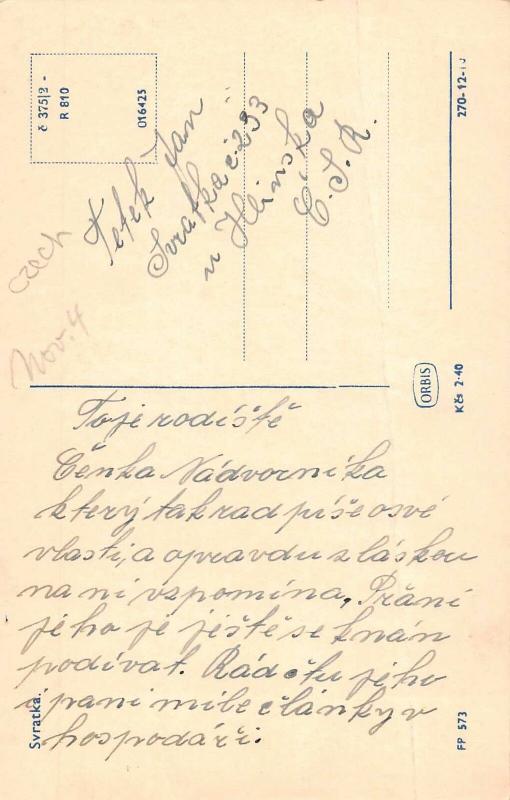 č 375|2 -
R 810
016425
Tefek Jan
Svratka č. 293
u Hlinska
Č. S. R.
270-12-
Czech
Nov. 4
ORBIS
Kčs 2·40
To je rodiště
Čeňka Nádvorníka
který tak rad píše o své
vlasti, a opravdu z láskou
na ni vzpomína. Přání
jeho je ještě se k nán
podívat. Rád čtu jeho
i pani mile články v
hospodáři.
Svratka.
FP 573